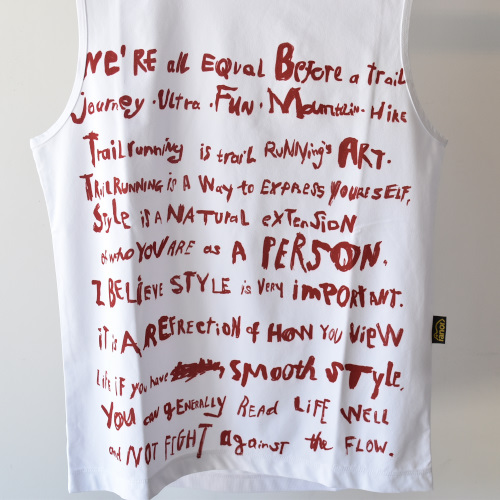 WE'RE all EQUAL BEfore a trail
Journey · Ultra · FUN · Mountain · HiKE
TrailrunninG is traiL RUNNiNg's ART.
TRAiLRUNNiNG is A Way to EXPRESS YOURSELF,
Style is A NATURAL eXTENSiON
of who YOU ARE as A PERSON.
I BELiEVE STYLE is VERY imPORTANT.
iT iS A REFRECTiON of HOW YOU ViEW
LiFE iF you HAVE smooth STYLE,
YOU can gENERALLY READ LiFE WELL
and NOT FiGHT against the FLOW.